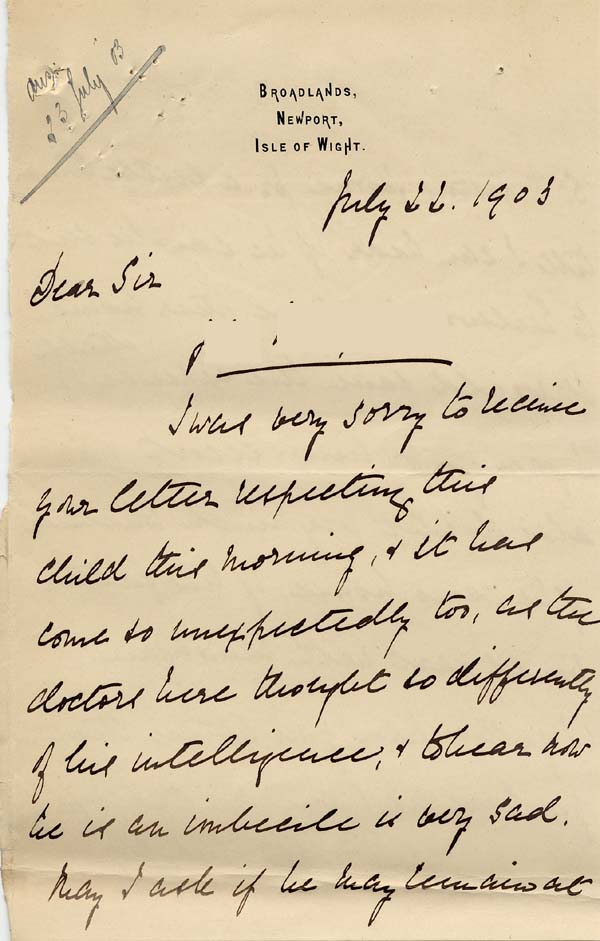 ansd
23 July 03
BROADLANDS,
NEWPORT,
ISLE OF WIGHT.
July 22. 1903
Dear Sir
I was very sorry to receive
your letter respecting this
child this morning, & it has
come so unexpectedly too, as the
doctors here thought so differently
of his intelligence, & to hear now
he is an imbecile is very sad.
May I ask if he may remain at